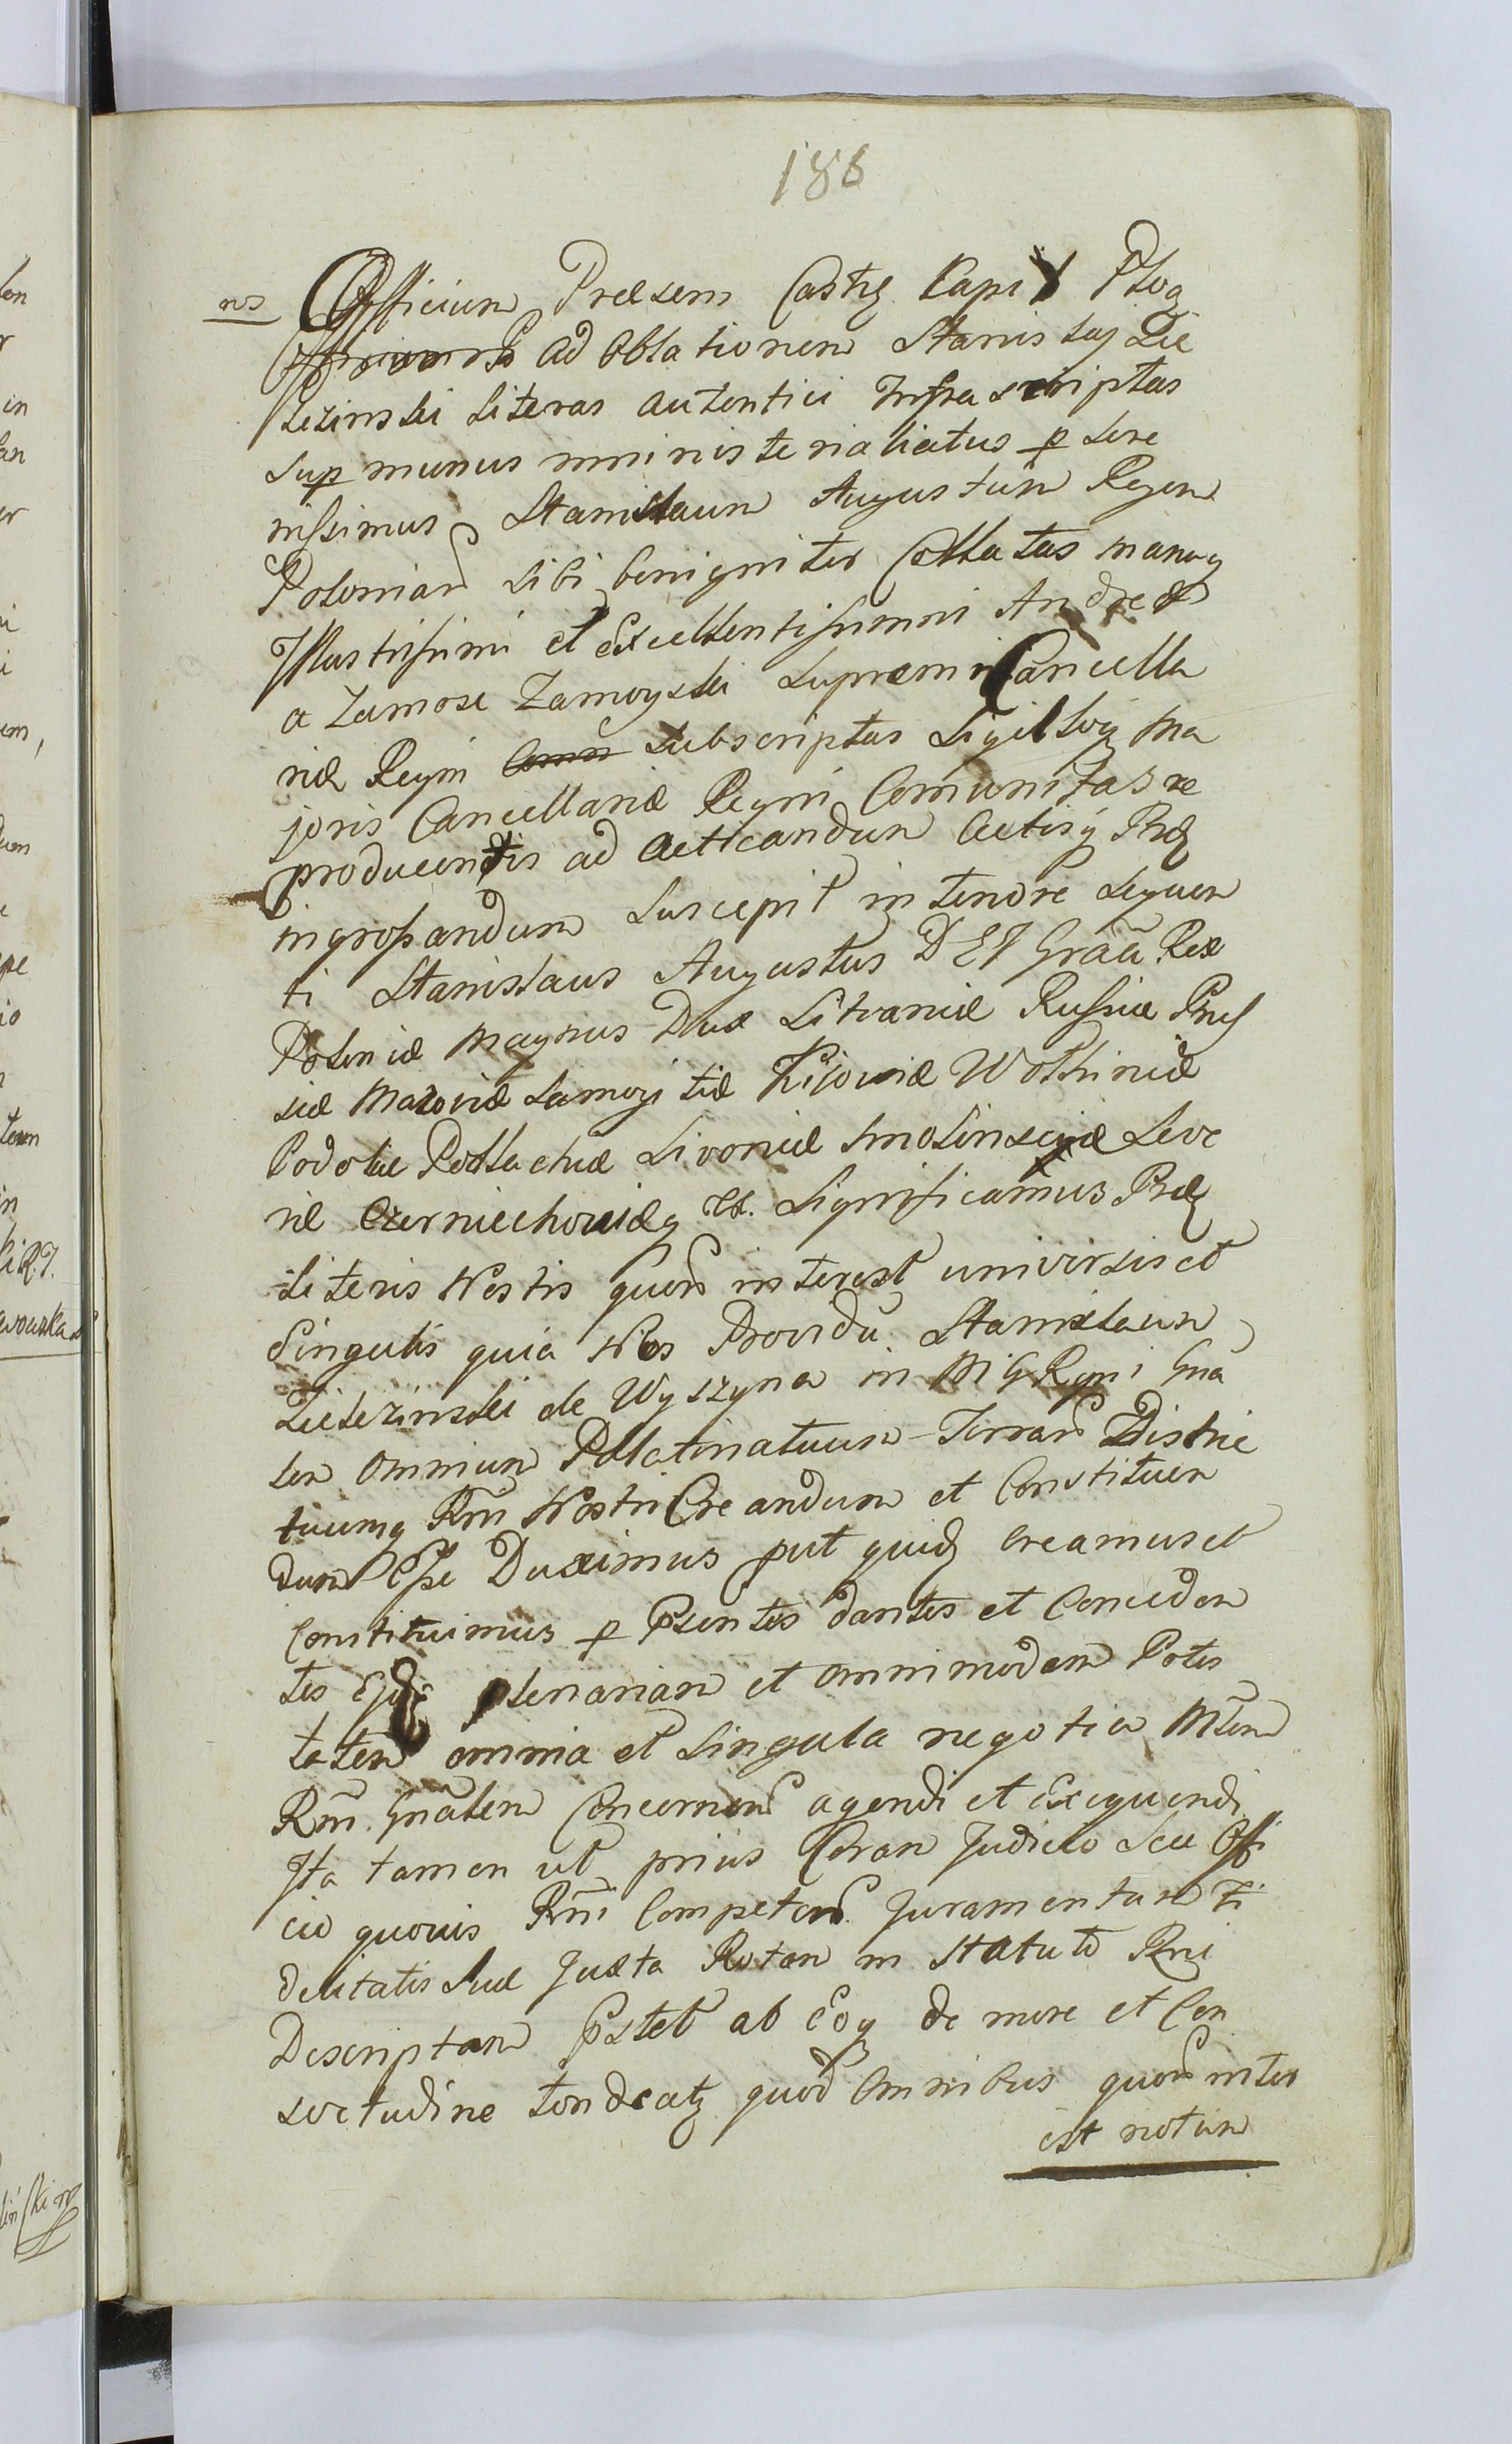 186
ns Officium Præsens Castr Capit Plog
ad oblationem Stanislaj Zie
lezinski Literas autentici Infrascriptas
sup munus ministerialicatus p Sere
nissimus Stanislaum Augustum Regem
Poloniar sibi benigniter Collatas manuq
Illustrissimi et Excellentissimni Andreæ
a Zamosc Zamoyski Supremi Cancella
riæ Regni subscriptas Sigilloq Ma
joris Cancellariæ Regni Comunitas re
producentis ad acticandum Actisq Prñ
ingrossandum Suscepit in tenore sequen
ti Stanislaus Augustus DEI Graã Rex
Poloniæ Magnus Dux Litvaniæ Russiæ Prus
siæ Mazoviæ Samogitiæ Kijoviæ Wolhiniæ
Podoliæ Podlachiæ Livoniæ Smolinsciæ Seve
riæ Czerniechoviæq Et. Significamus Prñ
Literis Nostris quor interest universis et
Singulis quia Nos Providũ Stanislaum
Zielezinski de Wyszyna in M G Regni Gna
lem omnium Pallatinatuum Terrar Distric
tuumq Rñi Nostri Creandum et Constituen
dum Esse Duximus put quid creamus et
Constituimus p Psentes dantes et Conceden
tes Ejd plenariam et omnimodam Potes
tatem omnia et Singula negotia Mtem
Rñi Gnãlem Concernen agendi et Exequendi
Ita tamen ut prius Coram Judicio Seu Offi
cio quovis Rñi Competen Juramentum Fi
delitatis Suæ Juxta Rotam in Statuto Rni
Descriptam Pstet ab Eoq de more et Con
svetudine tondeatq quod omnibus quor inter
est notum